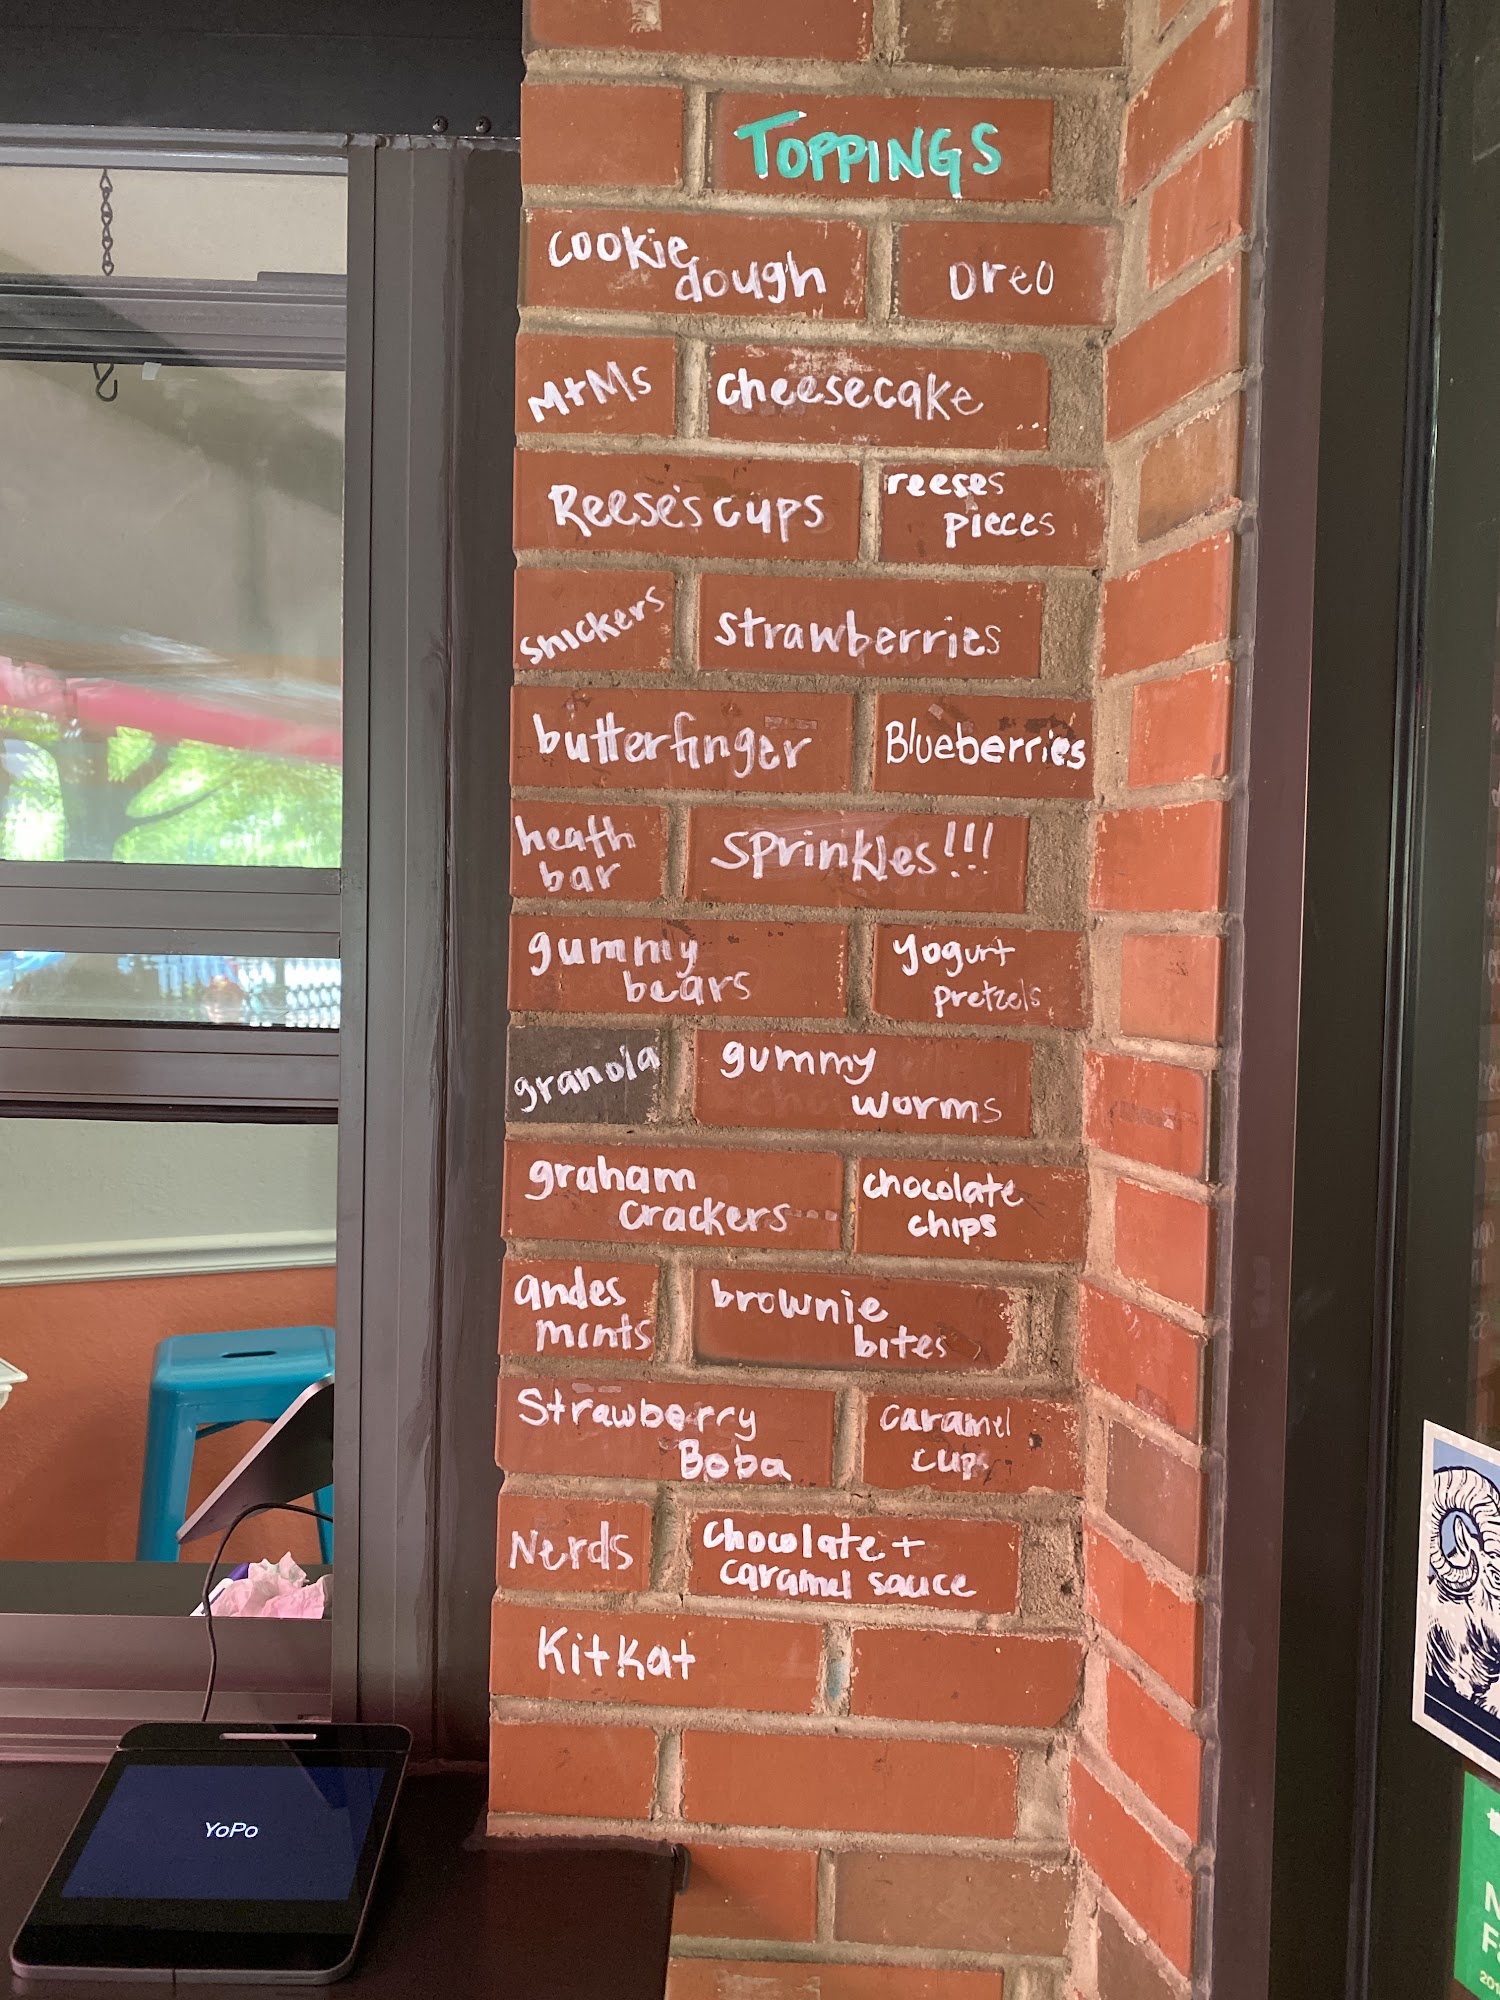 TOPPINGS
cookie
dough
oreo
M+Ms
cheesecake
Reese's cups
reeses
pieces
snickers
strawberries
butterfinger
Blueberries
heath
bar
sprinkles!!!
gummy
bears
yogurt
pretzels
granola
gummy
worms
graham
crackers
chocolate
chips
andes
mints
brownie
bites
Strawberry
Boba
caramel
cups
Nerds
chocolate +
caramel sauce
KitKat
YoPo